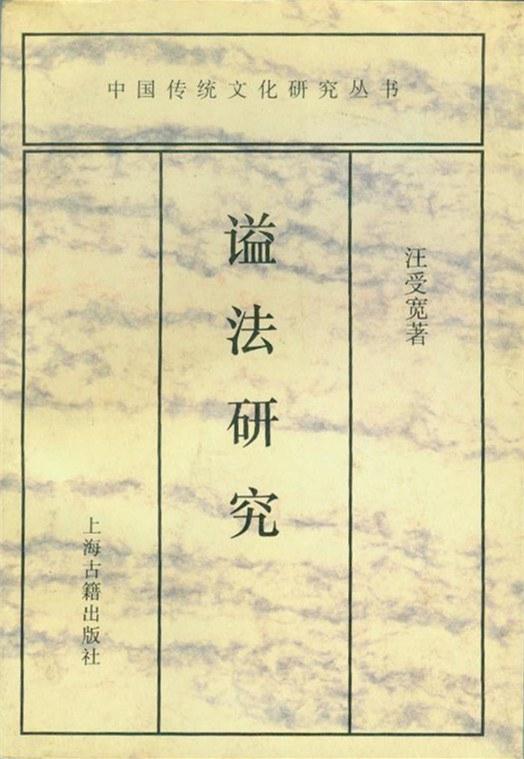 中国传统文化研究丛书
汪受宽著
谥法研究
上海古籍出版社